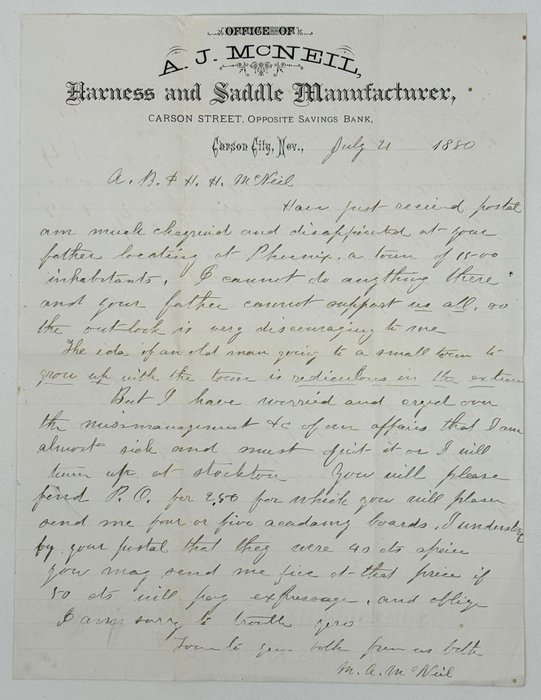 OFFICE OF
A. J. McNEIL,
Harness and Saddle Manufacturer,
CARSON STREET, OPPOSITE SAVINGS BANK,
Carson City, Nev., July 21 1880
A. B. & H. H. McNeil
Have just recieved postal
am much chagrined and disappointed at your
father locating at Phoenix, a town of 1500
inhabitants. I cannot do anything there
and your father cannot support us all, so
the outlook is very discouraging to me
The ida of an old man going to a small town to
grow up with the town is rediculous in the extreme
But I have worried and cryed over
the mismanagement &c of our affairs that I am
almost sick and must quit it or I will
turn up at stockton You will please
find P. O. for 2,50 for which you will please
send me four or five academy boards. I understand
by your postal that they were 40 cts apiece
you may send me five at that price if
50 cts will pay expressage, and oblige
I am sorry to trouble
Love to you both from us both
M. A. McNeil